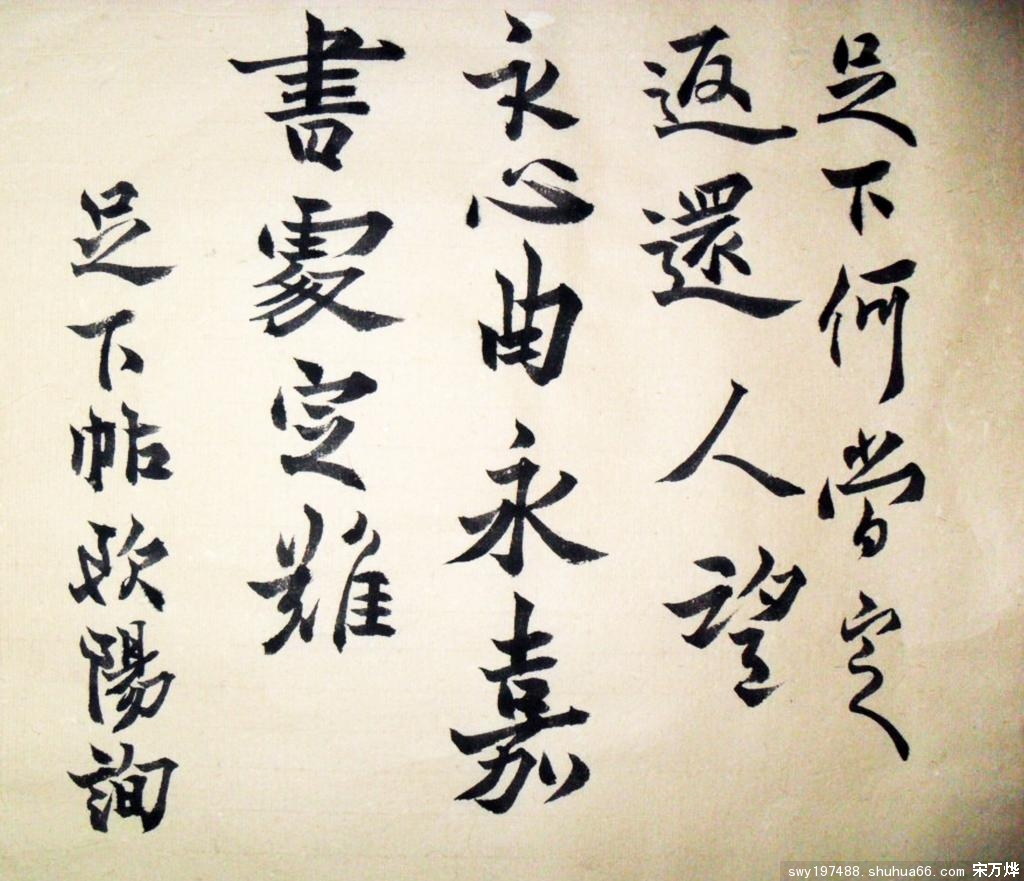 足下何當定
返還人望
永心曲永嘉
書處定難
足下帖歐陽詢
swy197488. shuhua66. com 宋万烨